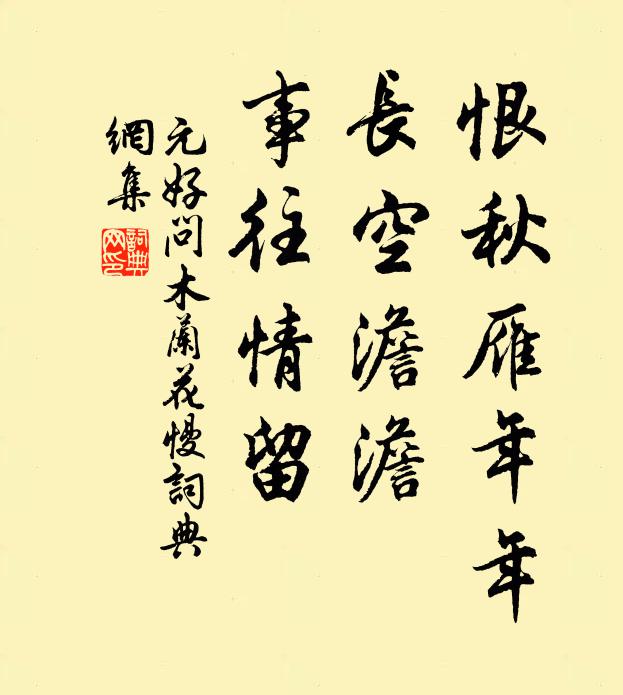 恨秋雁年年
長空澹澹
事往情留
元好問木蘭花慢詞典
網集
詞典
网印